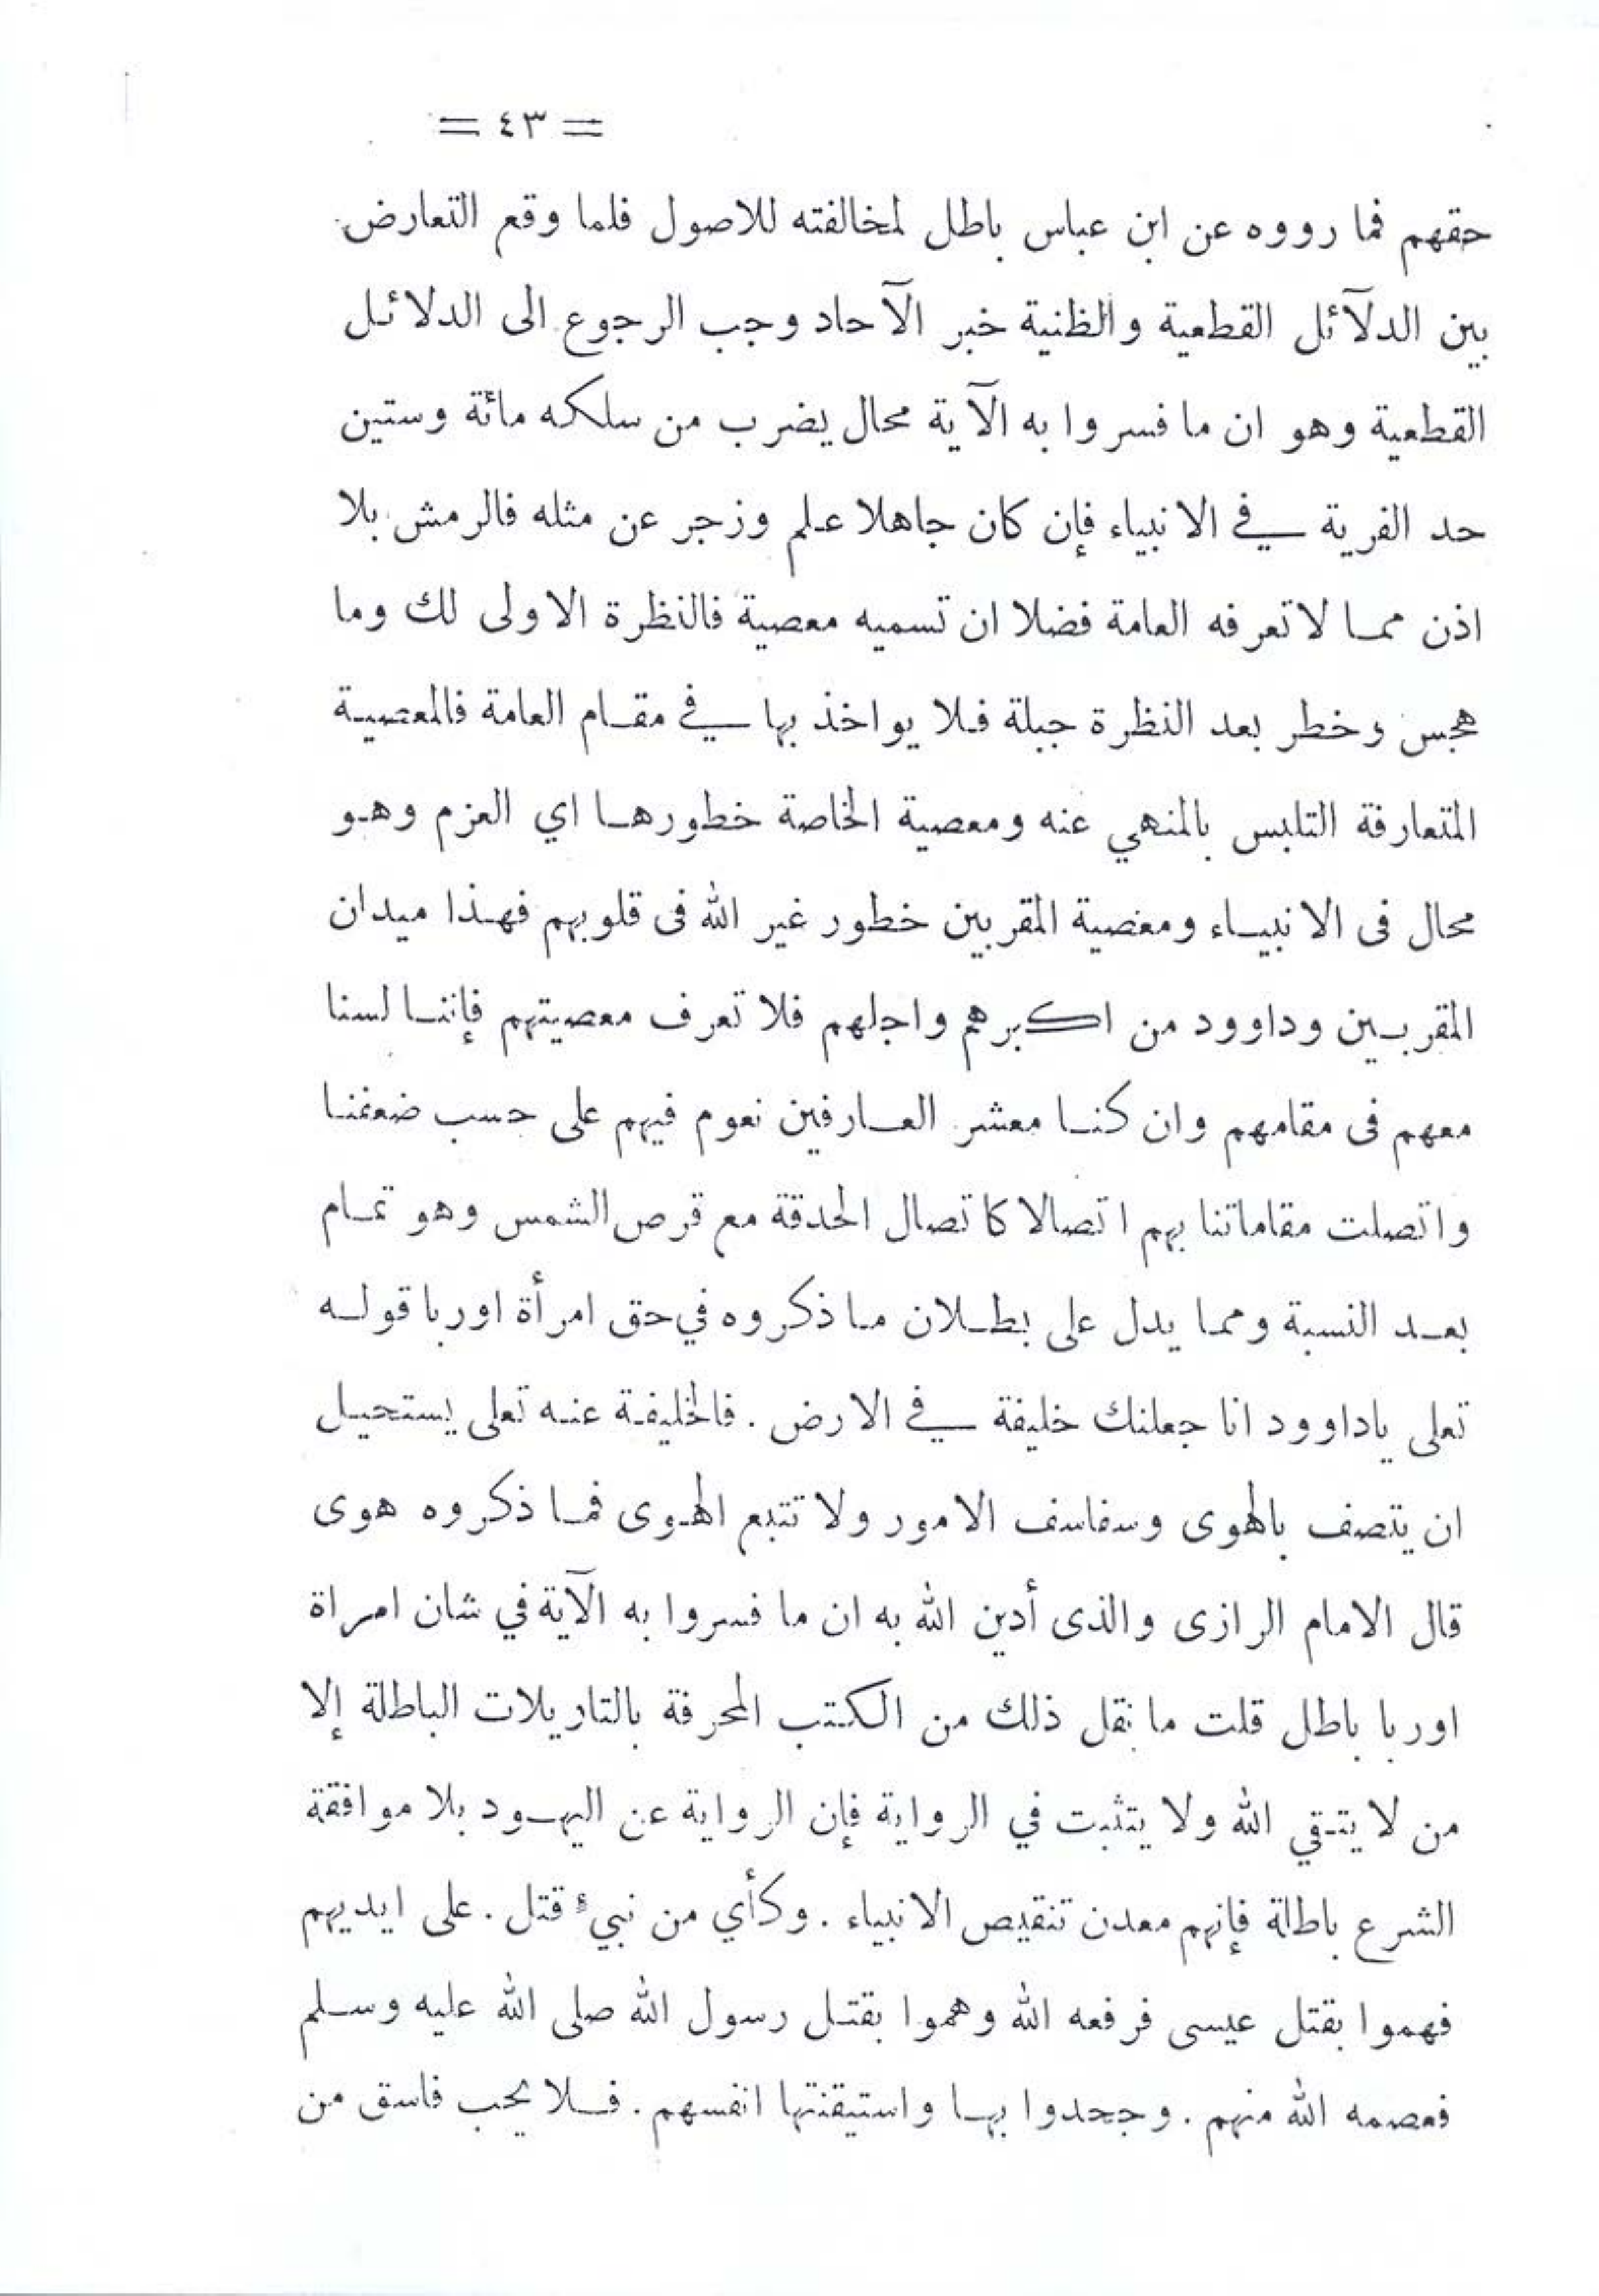 = ٤٣ =
حقهم فما رووه عن ابن عباس باطل لمخالفته للاصول فلما وقع التعارض
بين الدلآئل القطعية والظنية خبر الآحاد وجب الرجوع الى الدلائل
القطعية وهو ان ما فسروا به الآية محال يضرب من سلكه مائة وستين
حد الفرية في الانبياء فإن كان جاهلا علم وزجر عن مثله فالرمش بلا
اذن مما لا تعرفه العامة فضلا ان تسميه معصية فالنظرة الاولى لك وما
هجس وخطر بعد النظرة جبلة فلا يواخذ بها في مقام العامة فالمعصية
المتعارفة التلبس بالمنهي عنه ومعصية الخاصة خطورها اي العزم وهو
محال فى الانبياء ومغصية المقربين خطور غير الله فى قلوبهم فهذا ميدان
المقربين وداوود من اكبرهم واجلهم فلا تعرف معصيتهم فإننا لسنا
معهم فى مقامهم وان كنا معشر العارفين نعوم فيهم على حسب ضعفنا
واتصلت مقاماتنا بهم اتصالا كاتصال الحدقة مع قرص الشمس وهو تمام
بعد النسبة ومما يدل على بطلان ما ذكروه في حق امرأة اوريا قوله
تعلى ياداوود انا جعلنك خليفة في الارض . فالخليفة عنه تعلى يستحيل
ان يتصف بالهوى وسفاسف الامور ولا تتبع الهوى فما ذكروه هوى
قال الامام الرازى والذى أدين الله به ان ما فسروا به الآية في شان امراة
اوريا باطل قلت ما نقل ذلك من الكتب المحرفة بالتاريلات الباطلة إلا
من لا يتقي الله ولا يتثبت في الرواية فإن الرواية عن اليهود بلا موافقة
الشرع باطلة فإنهم معدن تنقيص الانبياء . وكأي من نبيء قتل . على ايديهم
فهموا بقتل عيسى فرفعه الله وهموا بقتل رسول الله صلى الله عليه وسلم
فعصمه الله منهم . وجحدوا بها واستيقنتها انفسهم . فلا يحب فاسق من